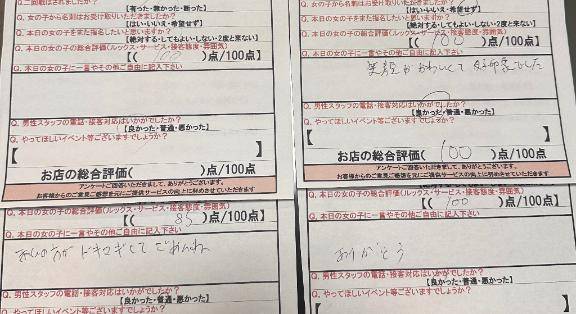 Q. 二回戦はされましたか?
【有った・無かった・断った】
Q. 女の子から名刺はお受け取りいただきましたか?
【はい・いいえ・希望せず】
Q. 本日の女の子をまた指名したいと思いますか?
【絶対する・してもよい・しない・2度と来ない】
Q. 本日の女の子の総合評価(ルックス・サービス・接客態度・雰囲気)
【( 100 )点/100点】
Q. 本日の女の子に一言やその他ご自由に記入下さい
Q. 男性スタッフの電話・接客対応はいかがでしたか?
【良かった・普通・悪かった】
Q. やってほしいイベント等ございますでしょうか?
【 】
お店の総合評価( )点/100点
アンケートご回答いただきまして、ありがとうございます。
お客様からのご意見ご感想を元にご提供サービスの向上に努めさせていただきます
Q. 女の子から名刺はお受け取りいただきましたか?
【はい・いいえ・希望せず】
Q. 本日の女の子をまた指名したいと思いますか?
【絶対する・してもよい・しない・2度と来ない】
Q. 本日の女の子の総合評価(ルックス・サービス・接客態度・雰囲気)
【( 100 )点/100点】
Q. 本日の女の子に一言やその他ご自由に記入下さい
笑顔がかわいくて好印象でした
Q. 男性スタッフの電話・接客対応はいかがでしたか?
【良かった・普通・悪かった】
Q. やってほしいイベント等ございますでしょうか?
【 】
お店の総合評価( 100 )点/100点
アンケートご回答いただきまして、ありがとうございます。
お客様からのご意見ご感想を元にご提供サービスの向上に努めさせていただきます
Q. 本日の女の子の総合評価(ルックス・サービス・接客態度・雰囲気)
【( 85 )点/100点】
Q. 本日の女の子に一言やその他ご自由に記入下さい
の方がドキマギしてごめんね
Q. 男性スタッフの電話・接客対応はいかがでしたか?
【良かった・普通・悪かった】
Q. やってほしいイベント等ございますでしょうか?
Q. 本日の女の子の総合評価(ルックス・サービス・接客態度・雰囲気)
【( 100 )点/100点】
Q. 本日の女の子に一言やその他ご自由に記入下さい
ありがとう
Q. 男性スタッフの電話・接客対応はいかがでしたか?
【良かった・普通・悪かった】
Q. やってほしいイベント等ございますでしょうか?